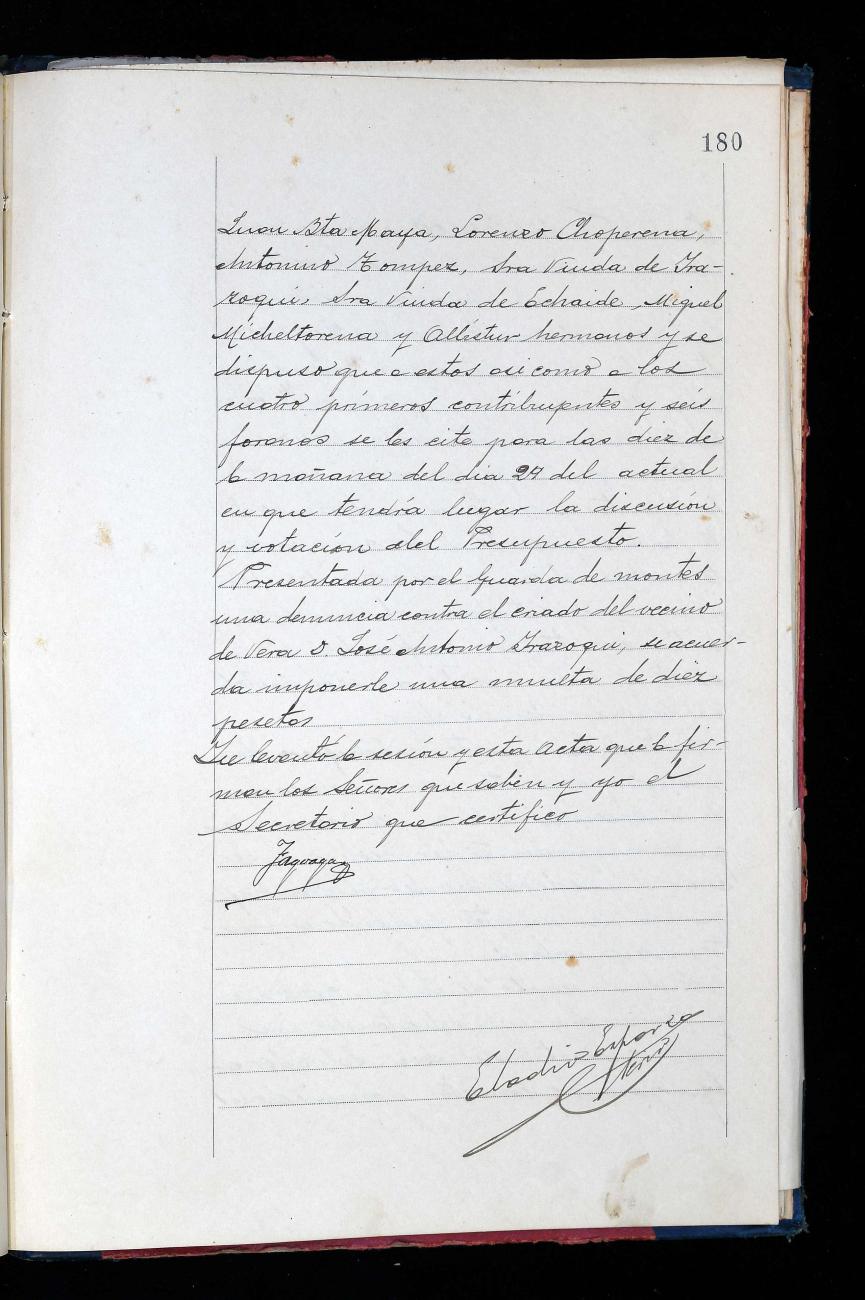 180
Juan Bta Maya, Lorenzo Choperena,
Antonino Tompez, Sra Viuda de Ira-
zoqui, Sra Viuda de Echaide, Miguel
Micheltorena y Ollistur hermanos y se
dispuso que a estos asi como a los
cuatro primeros contribuyentes y seis
foranos se les cite para las diez de
la mañana del dia 24 del actual
en que tendría lugar la discusión
y votación del Presupuesto.
Presentada por el Guarda de montes
una denuncia contra el criado del vecino
de Vera D. José Antonio Irazoqui, se acuer-
da imponerle una multa de diez
pesetas
Se levantó la sesión y esta acta que la fir-
man los Señores que saben y yo el
Secretario que certifico
Eladio Esparza